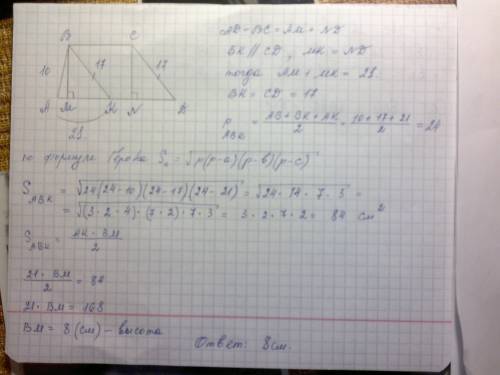 B C
10 17 17
A M K N D
21
AD - BC = AM + ND
BK // CD, MK = ND
тогда AM + MK = 21
BK = CD = 17
P ABK = AB + BK + AK / 2 = 10 + 17 + 21 / 2 = 24
по формуле Герона S△ = √p(p-a)(p-b)(p-c)
S ABK = √24(24-10)(24-17)(24-21) = √24·14·7·3 =
= √(3·2·4)·(7·2)·7·3 = 3·2·7·2 = 84 см²
S ABK = AK · BM / 2
21 · BM / 2 = 84
21 · BM = 168
BM = 8 (см) - высота
Ответ: 8см.